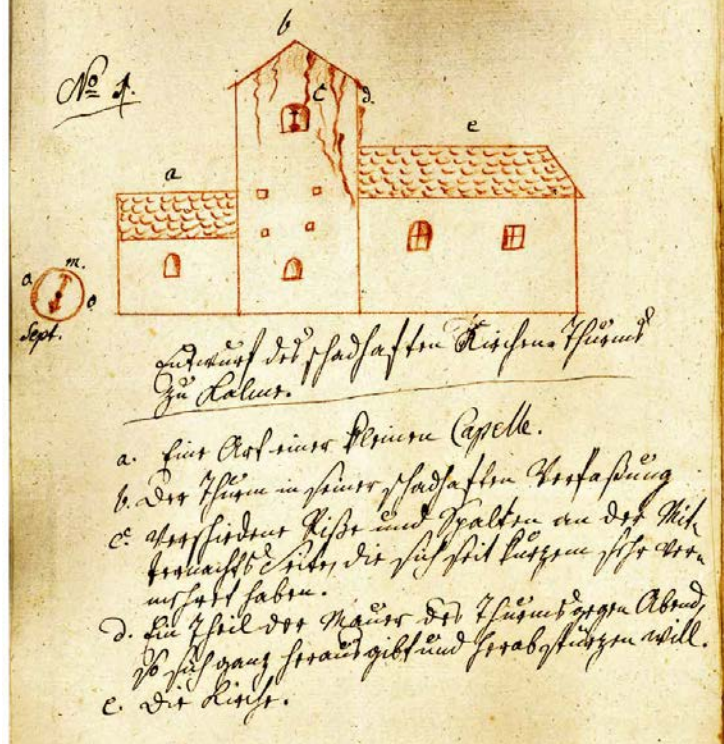 b
No 1.
c
d.
e
a
a
m.
o
Sept.
Entwurf des schadhaften Kirchen-Thurms
zu Kalme.
a. Eine Art einer kleinen Capelle.
b. Der Thurm in seiner schadhaften Verfaßung
c. Verschiedene Riße und Spalten an der Mit-
ternachts Seite, die sich seit kurzem sehr ver-
mehret haben.
d. Ein Theil der Mauer des Thurms gegen Abend,
so sich ganz heraus gibt und herab stürzen will.
e. Die Kirche.